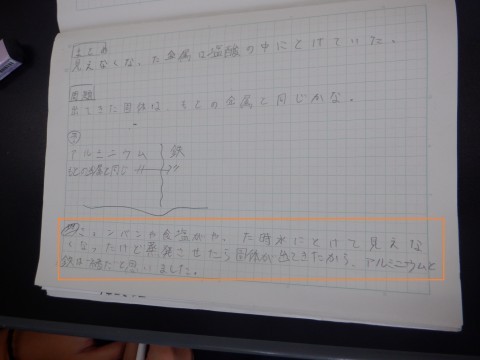 まとめ
見えなくなった金属は塩酸の中にとけていた。
問題
出てきた固体は、もとの金属と同じかな。
予
アルミニウム 鉄
もとの金属と同じ
ミョウバンや食塩がや、た時水にとけて見えな
くなったけど蒸発させたら固体が出てきたから、アルミニウムと
鉄は一緒だと思いました。